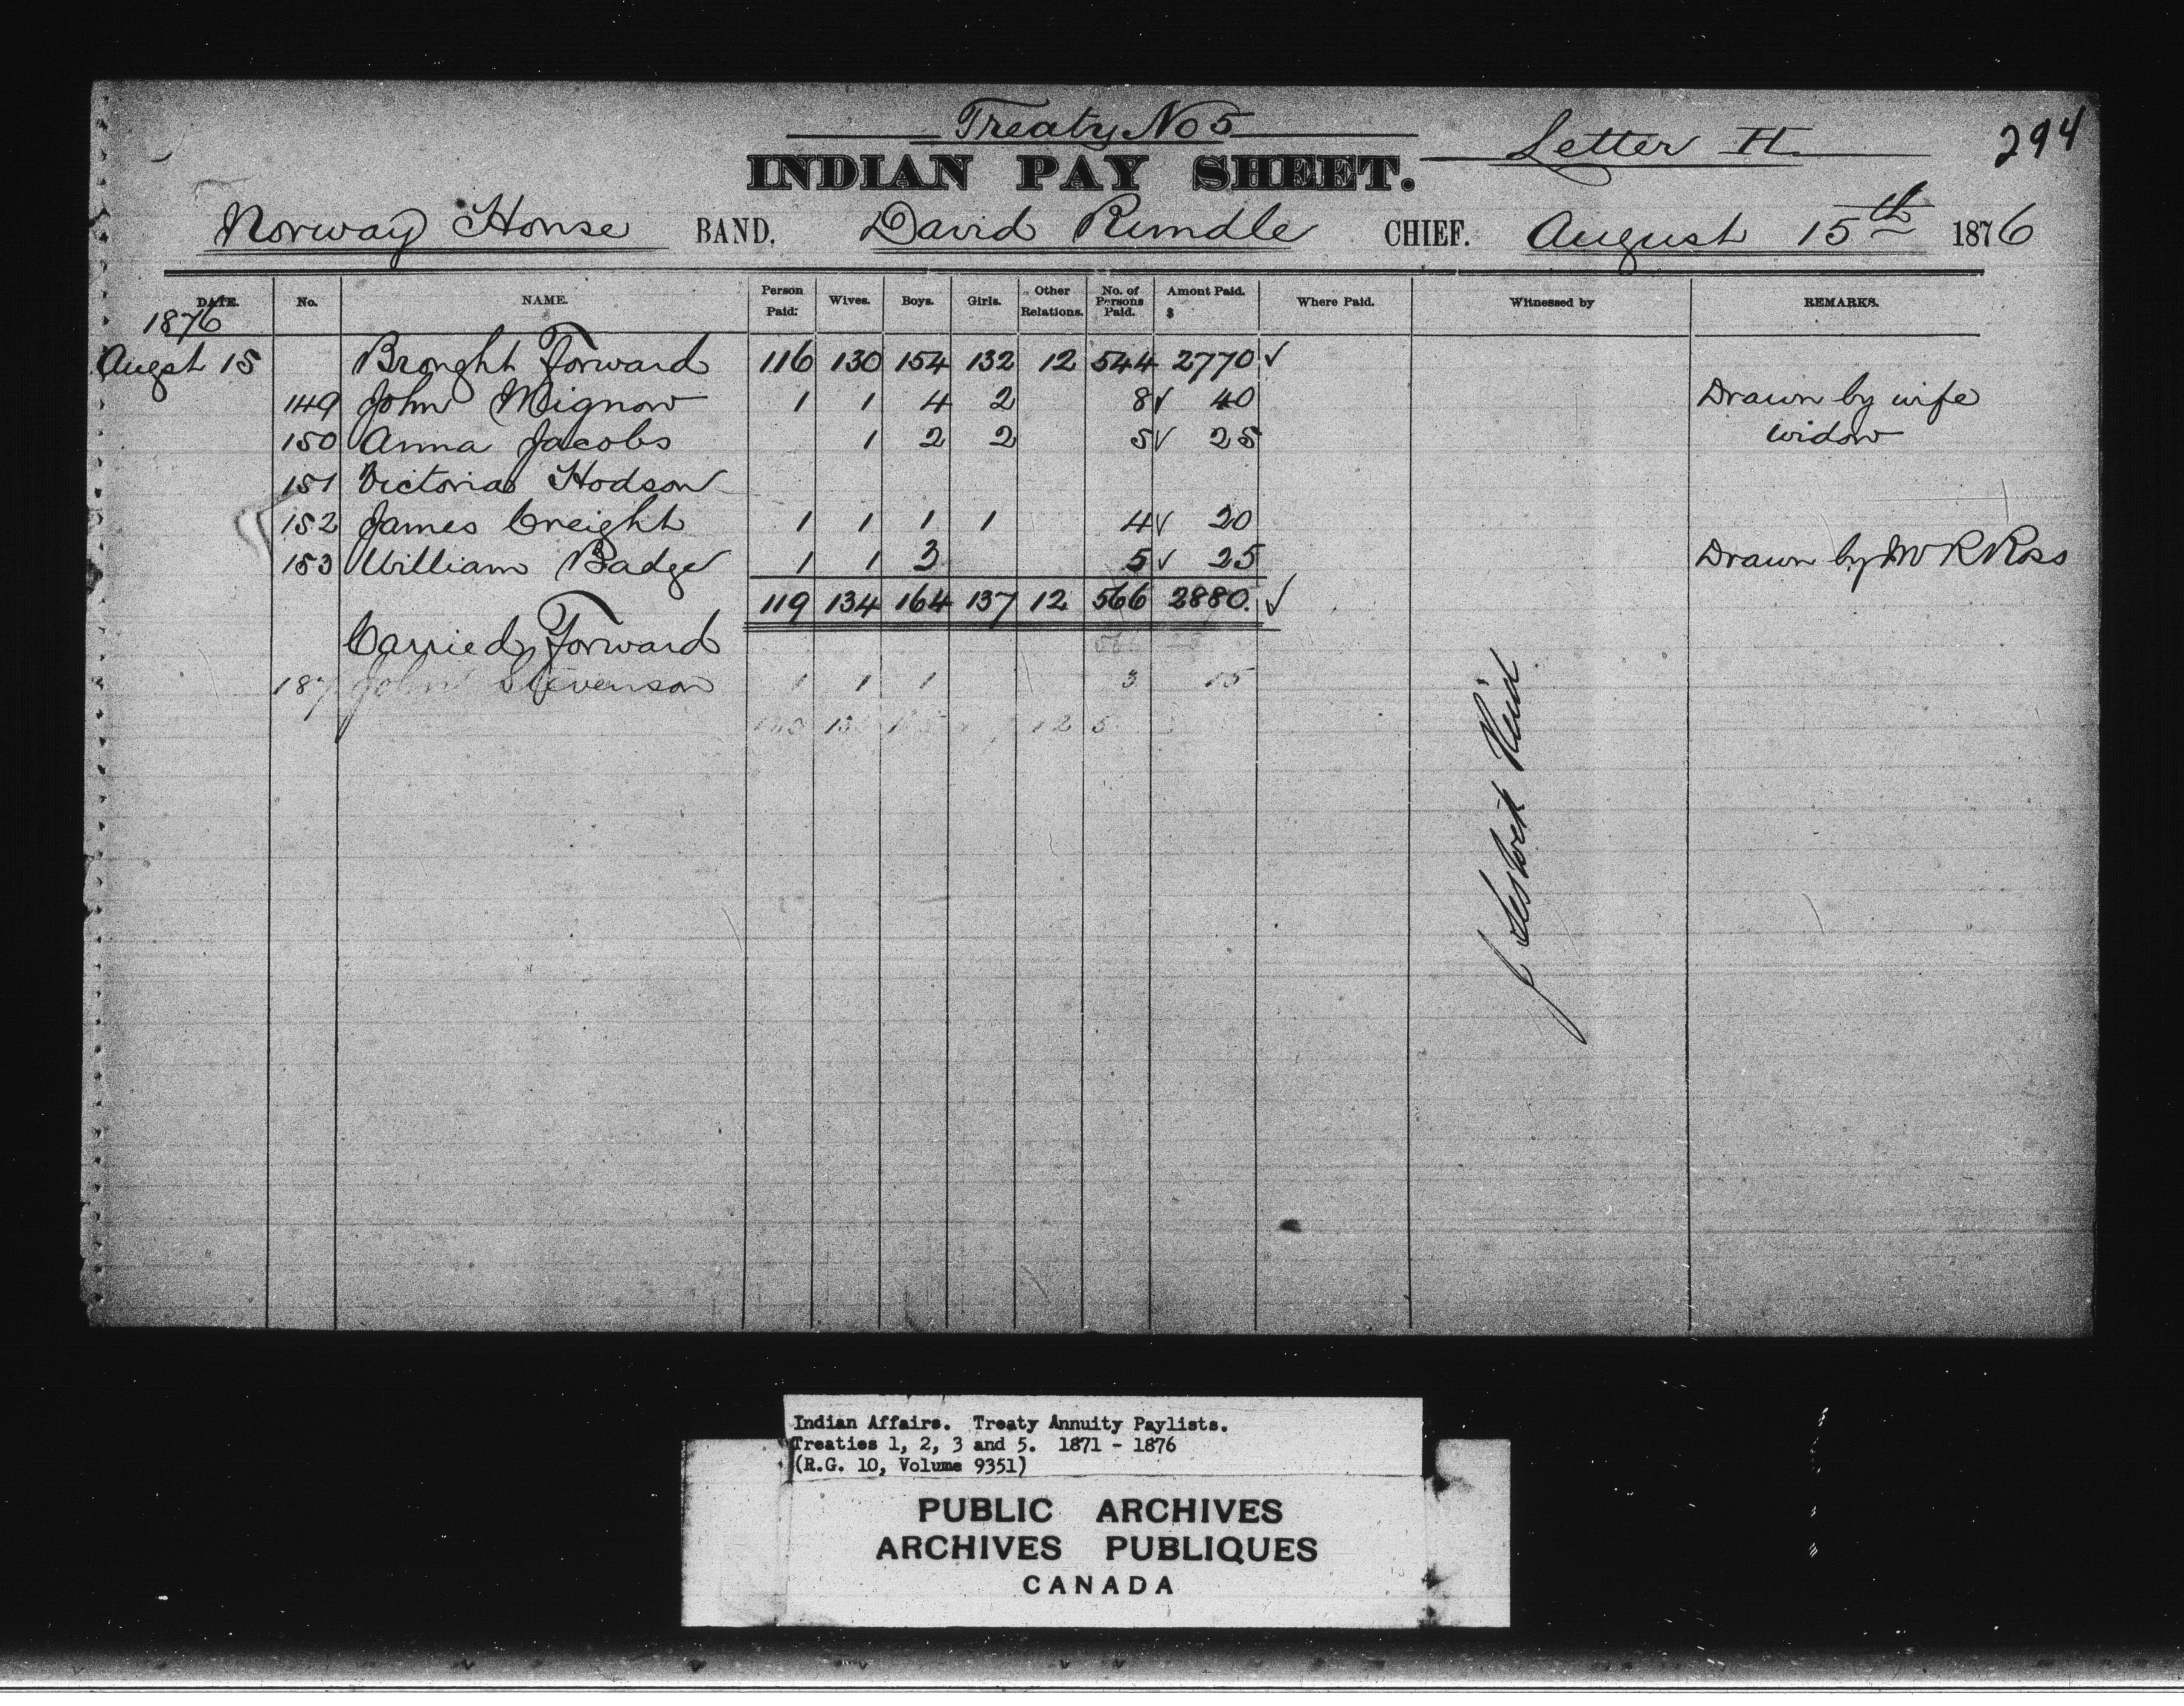 Treaty No 5
Letter H
294
INDIAN PAY SHEET.
Norway House BAND. David Rundle CHIEF. August 15th 1876
DATE. No. NAME. Person Paid: Wives. Boys. Girls. Other Relations. No. of Persons Paid. Amont Paid. $ Where Paid. Witnessed by REMARKS.
1876
Augst 15 Brought Forward 116 130 154 132 12 544 2770 ✓
149 John Mignow 1 1 4 2 8 ✓ 40 Drawn by wife
150 Anna Jacobs 1 2 2 5 ✓ 25 widow
151 Victoria Hodson
152 James Creight 1 1 1 1 4 ✓ 20
153 William Badge 1 1 3 5 ✓ 25 Drawn by W R Ross
119 134 164 137 12 566 2880. ✓
Carried Forward
187 John Stevenson 1 1 1 3 15
12
J Reid
Indian Affairs. Treaty Annuity Paylists.
Treaties 1, 2, 3 and 5. 1871 - 1876
(R.G. 10, Volume 9351)
PUBLIC ARCHIVES
ARCHIVES PUBLIQUES
CANADA